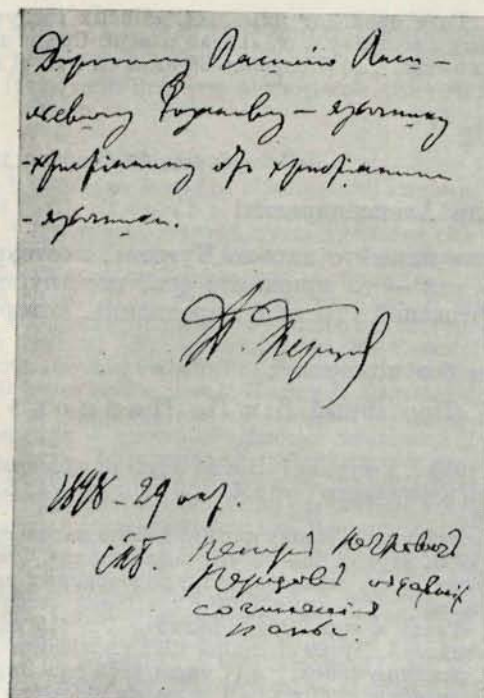 Дорогому Василію Васи-
льевичу Розанову — язычнику
-христіанину отъ христіанина
-язычника.
П. Перцов
1898 – 29 окт.
Спб. Петръ Петровичъ
Перцовъ издавшій
сочиненія